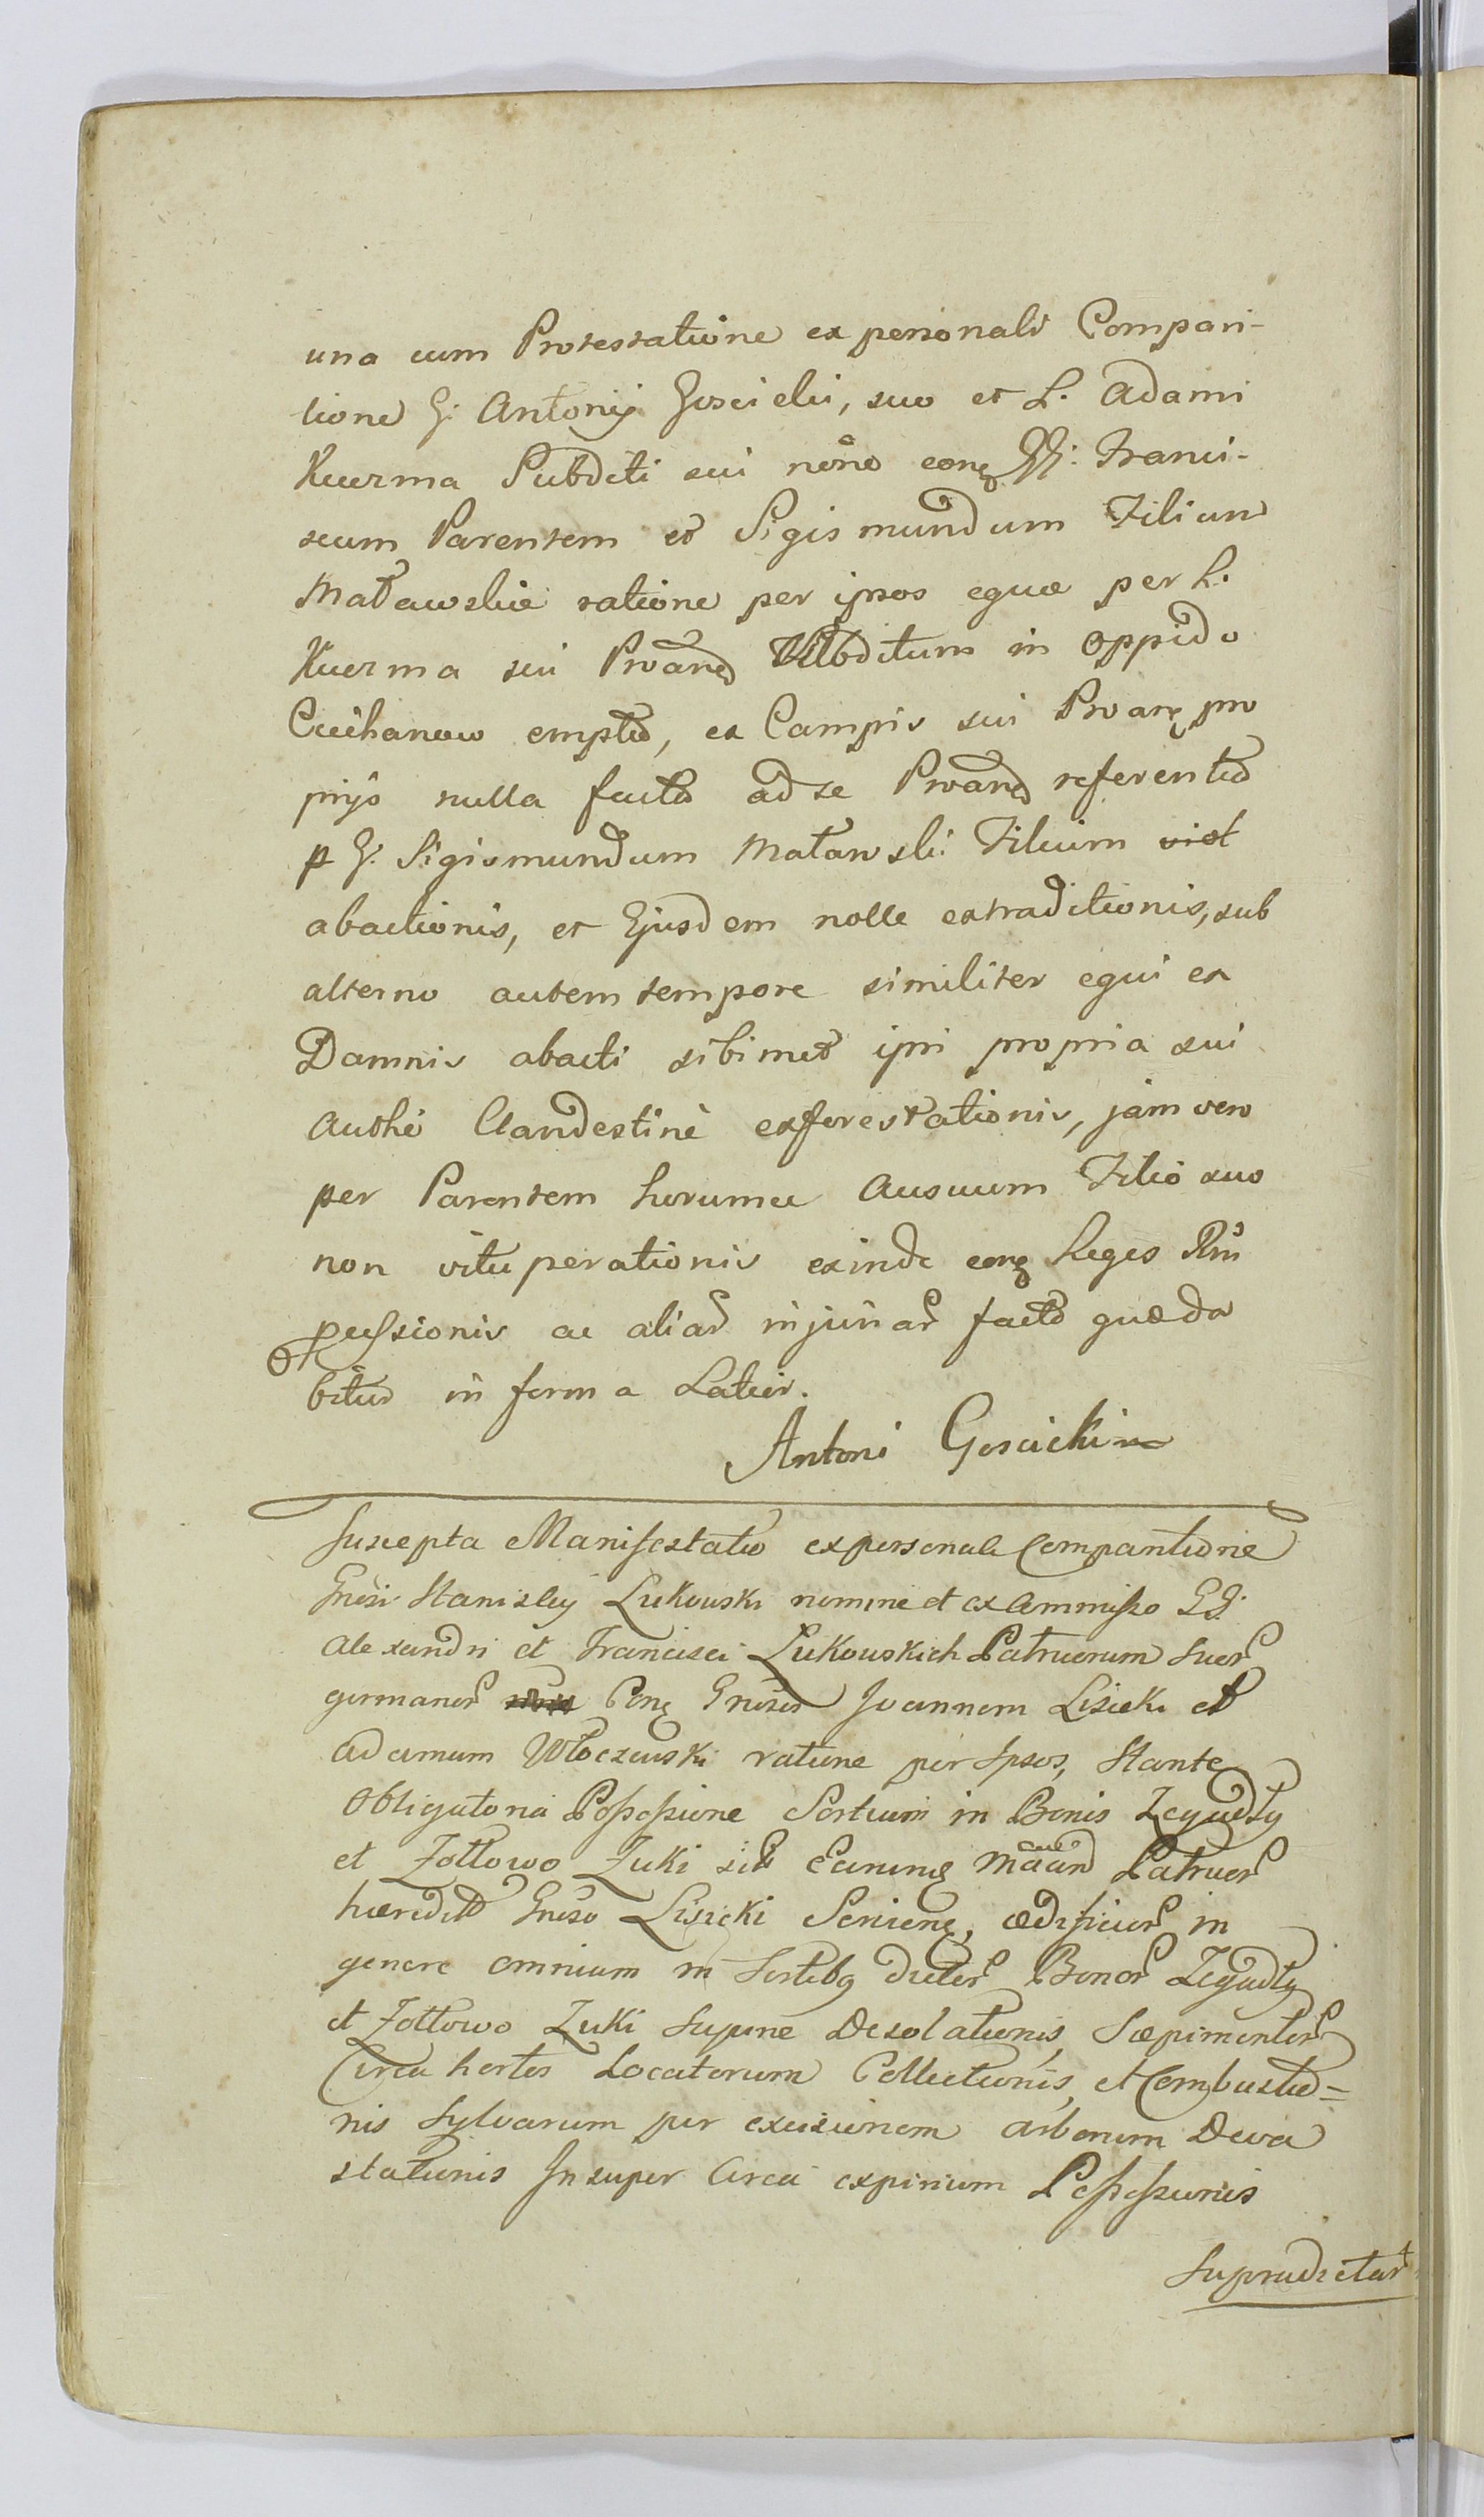 una cum Protestatione ex personali Compari-
tione G: Antonij Goscicki, suo et L. Adami
Kuczma Subditi sui nõne conq̃ GG: Franci-
scum Parentem et Sigismundum Filium
Matawskie ratione per ipsos equæ per L.
Kuczma sui Proãnd Subditum in oppido
Ciechanow empta, ex Campis sui Proanţ pro
prijs nulla facta ad se Proãnd referentia
p G. Sigismundum Matawski Filium viol
abactionis, et Ejusdem nolle extraditionis, sub
alterno autem tempore similiter equi ex
Damnis abacti sibimet ipsi propria sui
Authe Clandestinè exforestationis, jam vero
per Parentem horumce Ausuum Filio suo
non vituperationis exinde conq̃ Leges Rni
pessionis ac aliar injuriar facta quæ da
bitur in forma Latior.
Antoni Goscicki
Suscepta Manifestatio ex personali Comparitione
Gnosi Stanislaj Łukowski nomine et ex Commisso GG:
Alexandri et Francisci Łukowskich Patruorum Suor
germanor Conq̃ Gnosos Joannem Lisicki et
Adamum Włoczewski ratione per Ipsos, Stante
Obligatoria Possessione Sortium in Bonis Zegadły
et Zołtowo Zuki sib Eorumq̃ Patruor
hæredit Gnoso Lisicki Serviene, ædificior in
genere omnium in Sortibq dictor Bonor Zegadły
et Zołtowo Zuki Supine Desolationis, Sæpimentor
Circa hortos Locatorum Collectionis, et Combustio=
nis Sylvarum per excisionem arborum Deva
stationis Insuper Circa expirium Possessionis
Supradictar